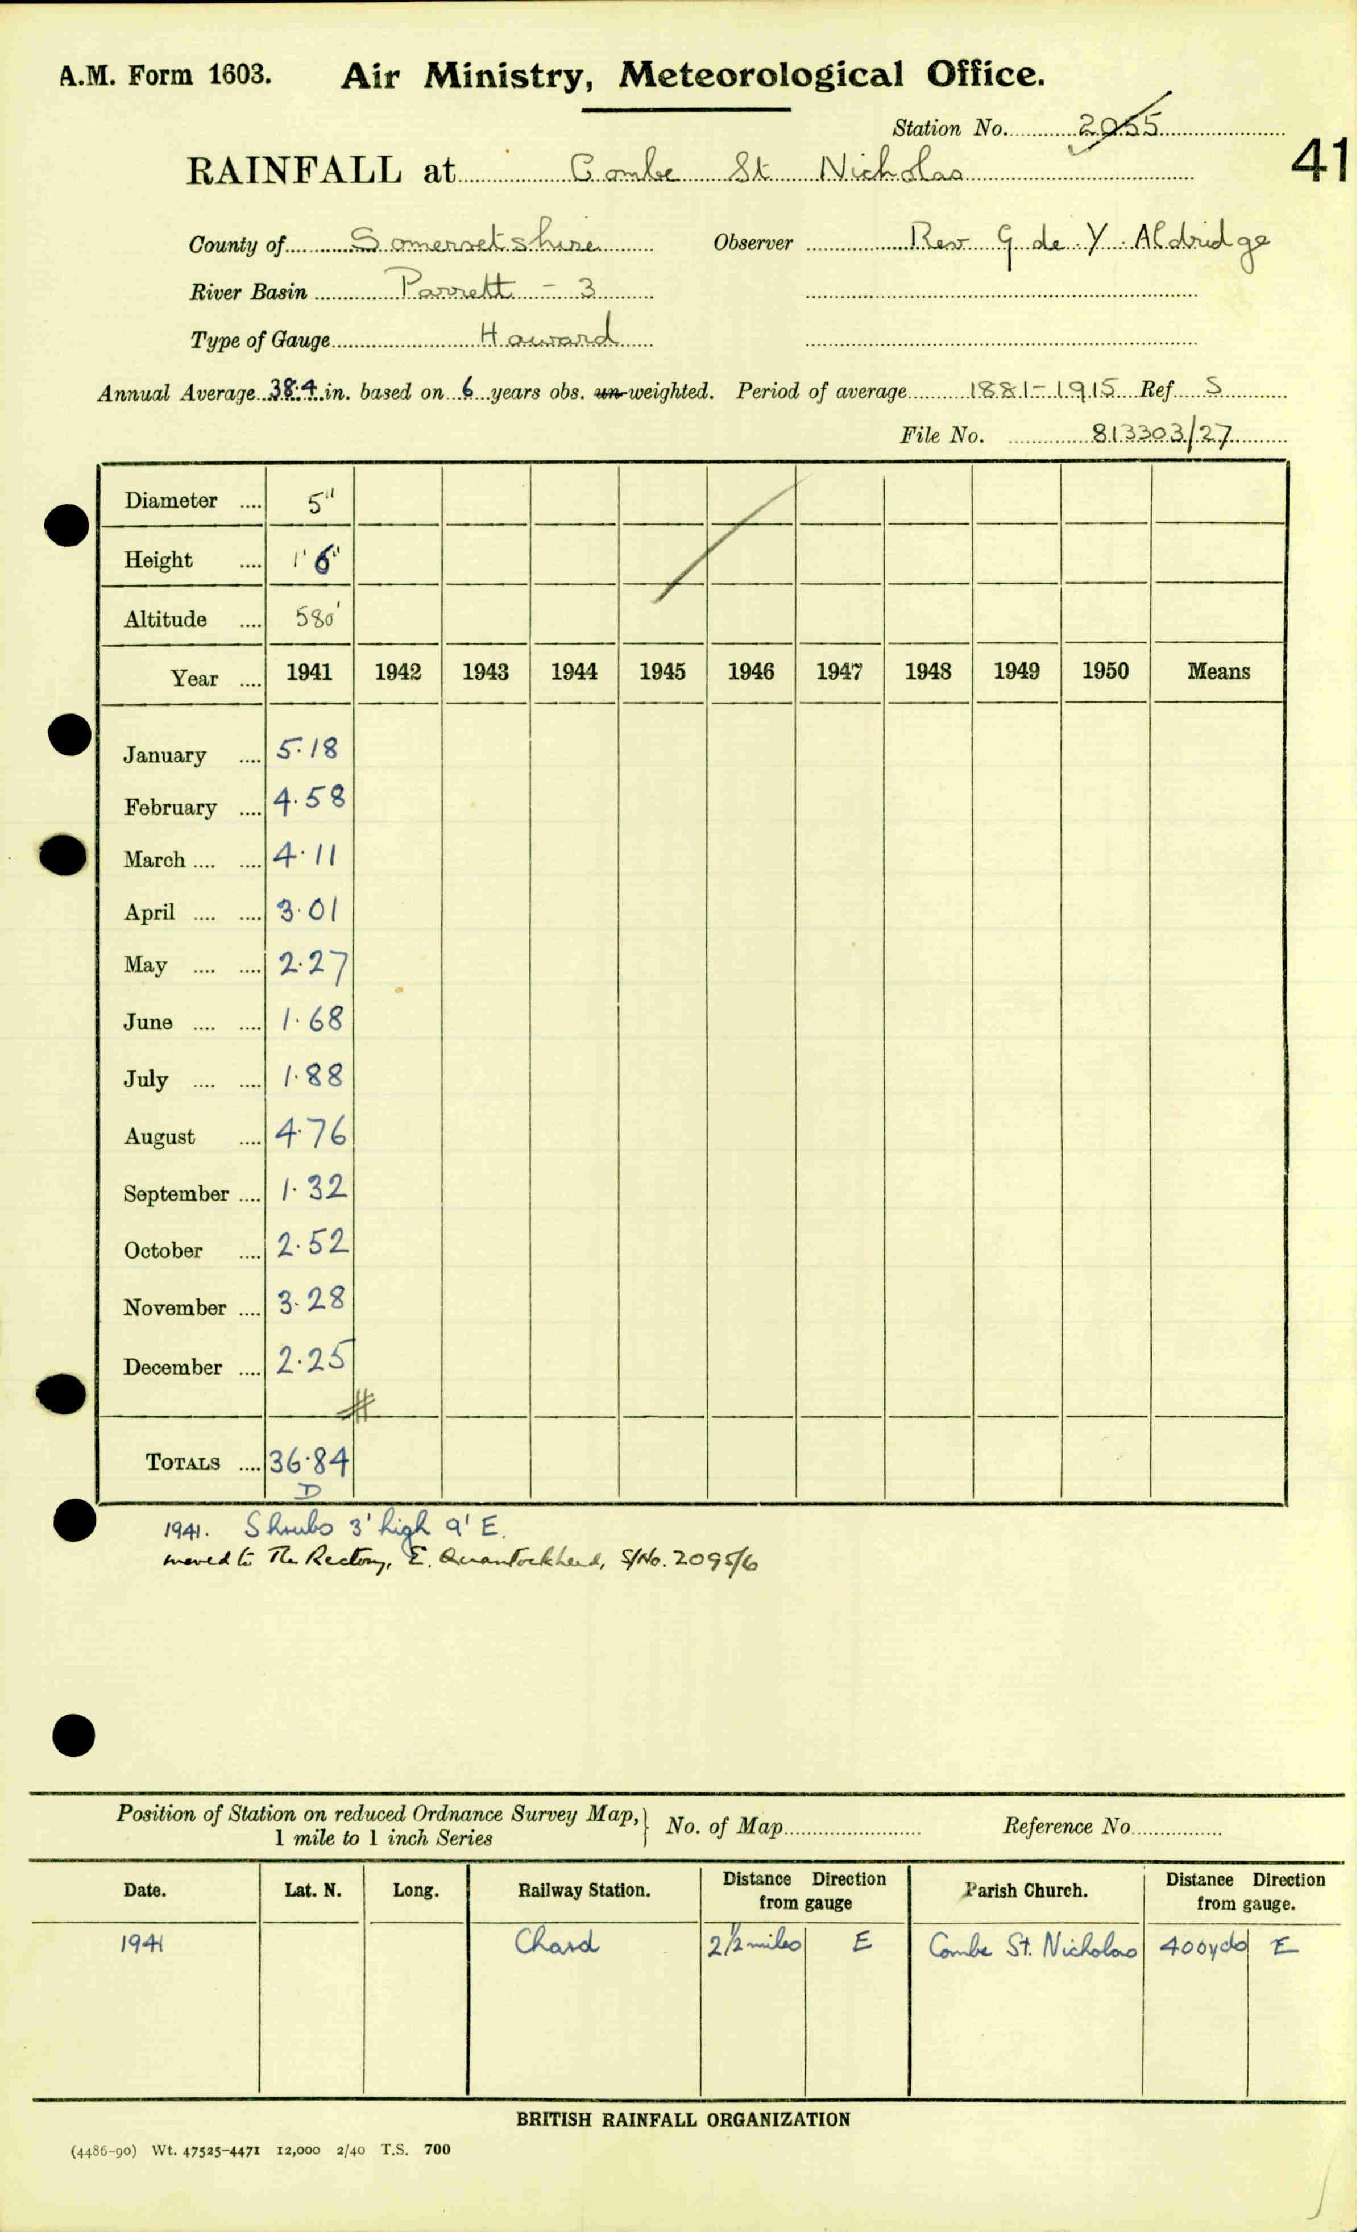 A.M. Form 1603. Air Ministry, Meteorological Office.
Station No. 2055
41
RAINFALL at Combe St Nicholas
County of Somersetshire Observer Rev G de Y Aldridge
River Basin Parrett - 3
Type of Gauge Howard
Annual Average 38.4 in. based on 6 years obs. un-weighted. Period of average 1881-1915 Ref S
File No. 813303/27
Diameter .... 5"
Height .... 1' 6"
Altitude .... 580'
Year .... 1941 1942 1943 1944 1945 1946 1947 1948 1949 1950 Means
January .... 5.18
February .... 4.58
March .... .... 4.11
April .... .... 3.01
May .... .... 2.27
June .... .... 1.68
July .... .... 1.88
August .... 4.76
September .... 1.32
October .... 2.52
November .... 3.28
December .... 2.25
TOTALS .... 36.84
D
1941. Shrubs 3' high 9' E.
moved to The Rectory, E. Quantockhead, S/No. 2095/6
Position of Station on reduced Ordnance Survey Map, 1 mile to 1 inch Series } No. of Map Reference No
Date. Lat. N. Long. Railway Station. Distance Direction from gauge Parish Church. Distance Direction from gauge.
1941 Chard 2½ miles E Combe St. Nicholas 400 yds E
BRITISH RAINFALL ORGANIZATION
(4486-90) Wt. 47525-4471 12,000 2/40 T.S. 700